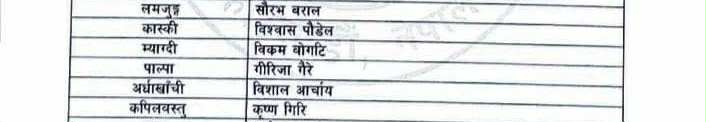 लमजुङ्ग सौरभ बराल
कास्की विश्वास पौडेल
म्याग्दी विक्रम बोगटि
पाल्पा गीरिजा गैरे
अर्घाखाँची विशाल आर्चाय
कपिलवस्तु कृष्ण गिरि